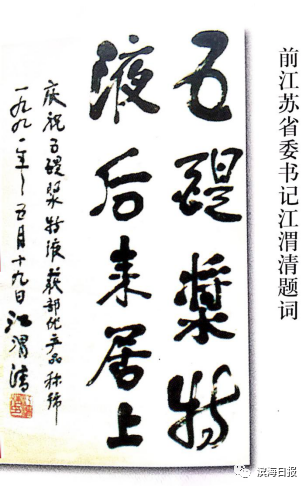 前江苏省委书记江渭清题词
五醍漿特
液后来居上
庆祝五醍浆特液获部优产品称号
一九九一年五月十九日 江渭清
滨海日报